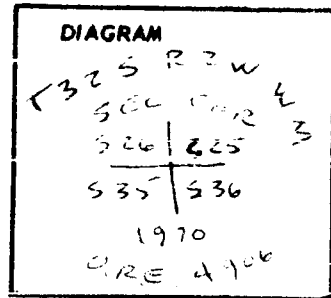 DIAGRAM
T 32 S R 2 W W M
SEC COR
S 26 S 25
S 35 S 36
1970
ORE 4906